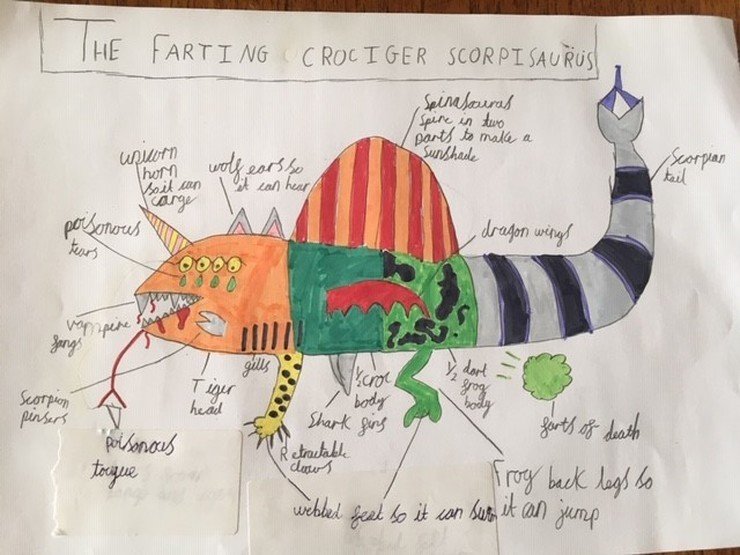 THE FARTING CROCIGER SCORPISAURUS
Spinasauras
Spine in two
parts to make a
Sunshade
unicorn
horn
so it can
carge
wolf ears so
it can hear
Scorpian
tail
poisonous
tears
dragon wings
vampire
fangs
Scorpion
pinsers
Tiger
head
gills
½ croc
body
½ dart
frog
body
Shark fins
farts of death
poisonous
tougue
Retractable
claws
webbed feet so it can
Frog back legs so
it can jump